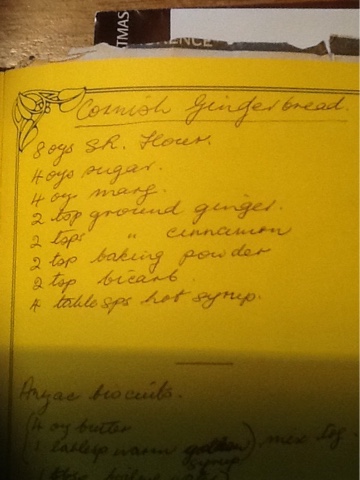 TMAS
ENCE
Cornish Gingerbread.
8 ozs S.R. Flour.
4 ozs sugar.
4 oz marg.
2 tsp ground ginger.
2 tsps " cinnamon
2 tsp baking powder
2 tsp bicarb
4 tablesps hot syrup.
Anzac biscuits.
(4 oz butter
1 tablesp warm golden) mix tog.
syrup